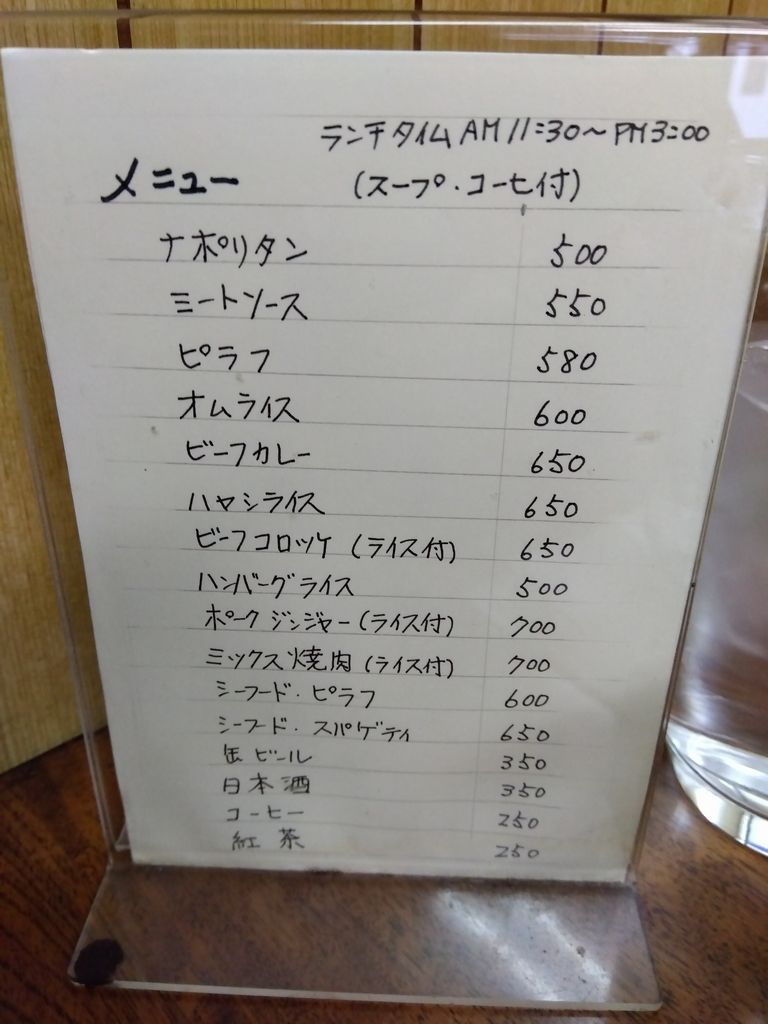 ランチタイム AM11:30〜PM3:00
メニュー (スープ・コーヒ付)
ナポリタン 500
ミートソース 550
ピラフ 580
オムライス 600
ビーフカレー 650
ハヤシライス 650
ビーフコロッケ (ライス付) 650
ハンバーグライス 500
ポークジンジャー(ライス付) 700
ミックス焼肉(ライス付) 700
シーフード・ピラフ 600
シーフード・スパゲティ 650
缶ビール 350
日本酒 350
コーヒー 250
紅茶 250